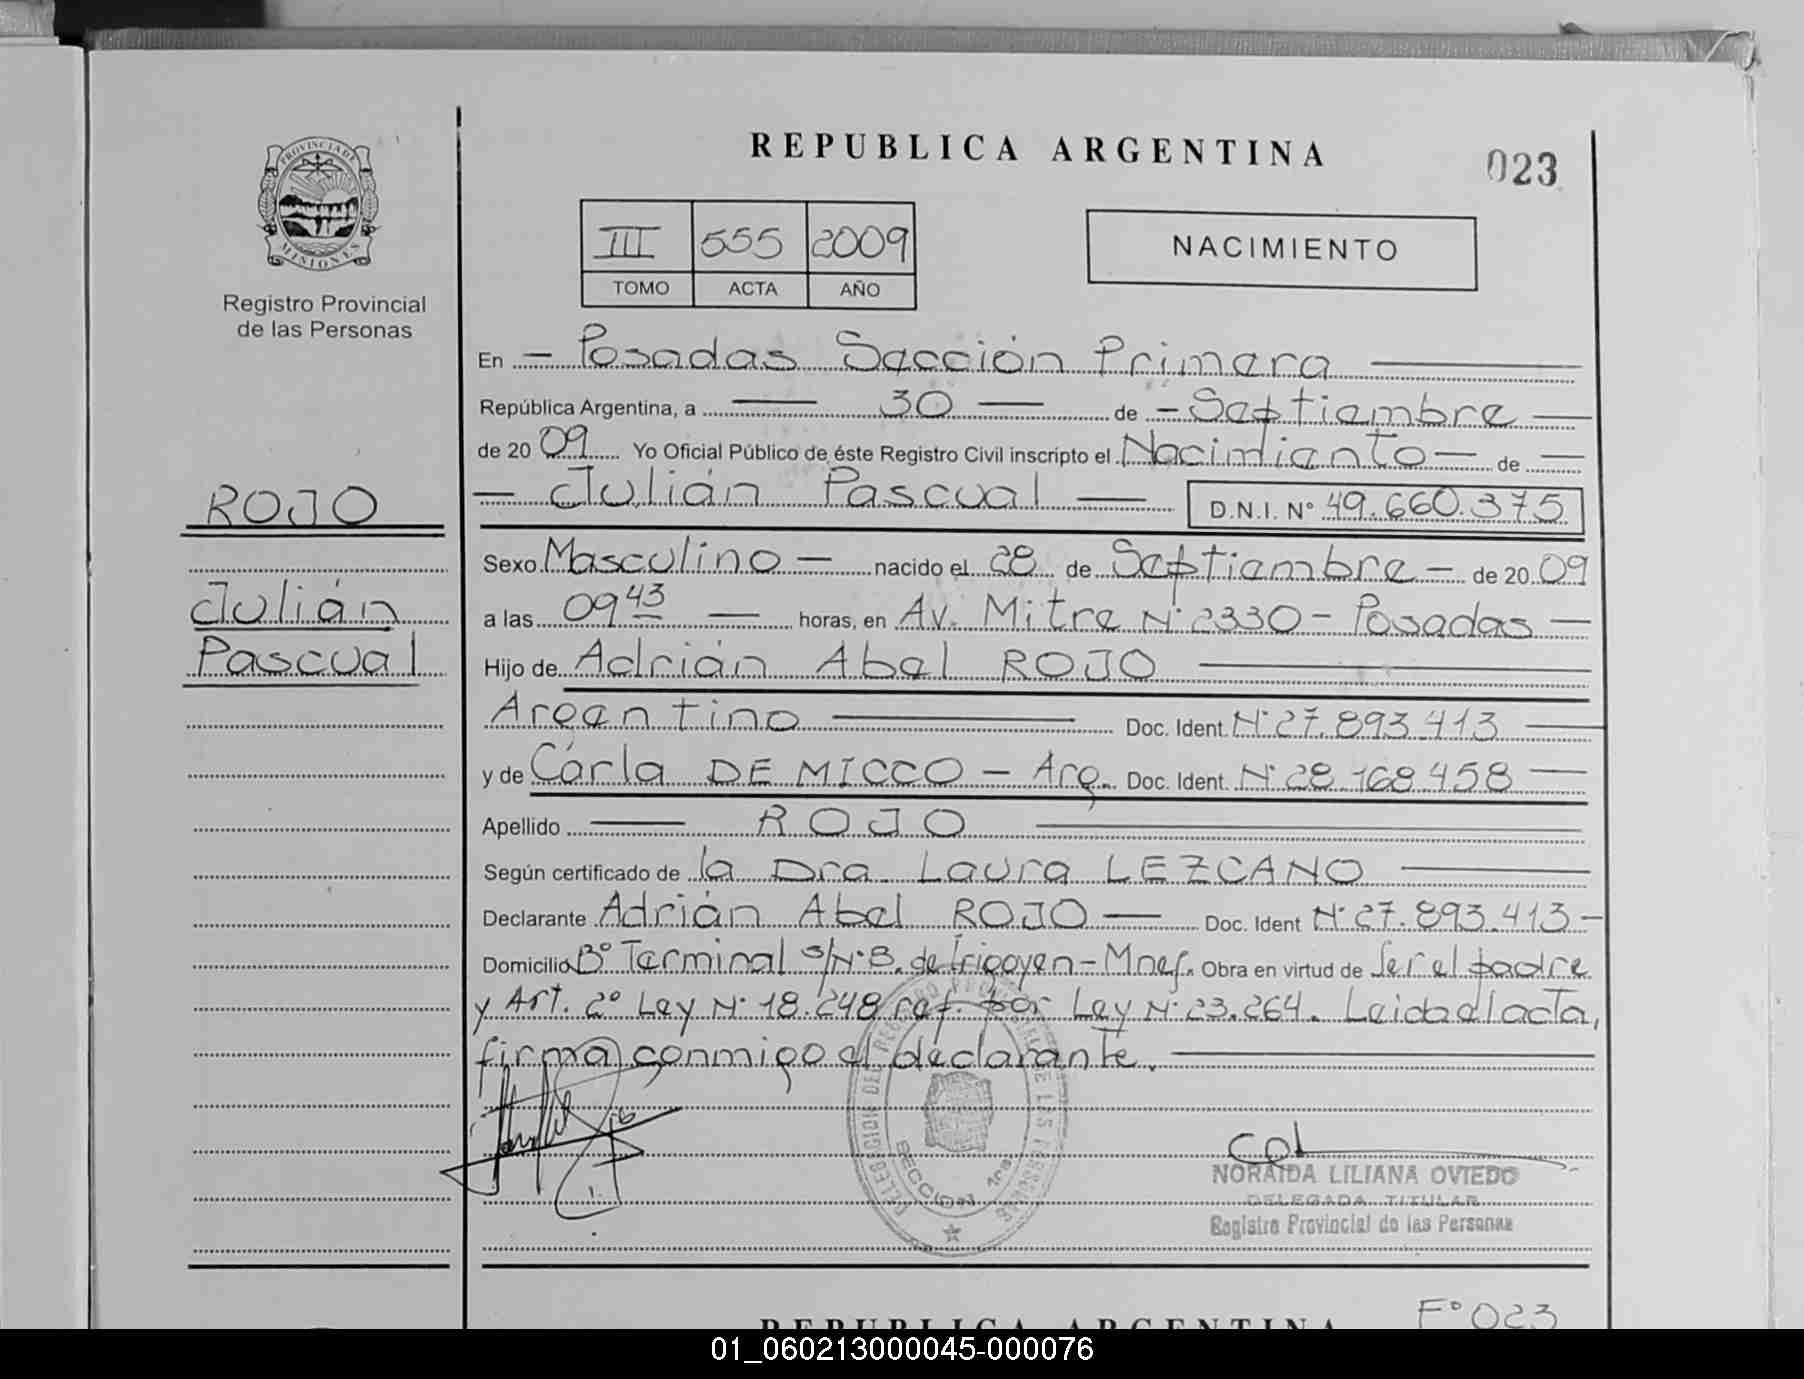 REPUBLICA ARGENTINA
023
PROVINCIA DE
MISIONES
Registro Provincial
de las Personas
III 555 2009
TOMO ACTA AÑO
NACIMIENTO
En — Posadas Sección Primera —
República Argentina, a — 30 — de — Septiembre —
de 20 09 Yo Oficial Público de éste Registro Civil inscripto el Nacimiento — de —
— Julián Pascual — D.N.I. N° 49.660.375
ROJO
Julián
Pascual
Sexo Masculino — nacido el 28 de Septiembre — de 20 09
a las 09 43 — horas, en Av. Mitre N° 2330 - Posadas —
Hijo de Adrián Abel ROJO —
Argentino — Doc. Ident. N° 27.893.413 —
y de Carla DE MICCO — Arg. Doc. Ident. N° 28.168.458 —
Apellido — ROJO —
Según certificado de la Dra. Laura LEZCANO —
Declarante Adrián Abel ROJO — Doc. Ident N° 27.893.413 —
Domicilio B° Terminal s/N° B. de Irigoyen - Mnes. Obra en virtud de ser el padre
y Art. 2° Ley N° 18.248 ref. por Ley N° 23.264. Leida el acta,
firma conmigo el declarante. —
DELEGACION DEL REGISTRO PROVINCIAL DE LAS PERSONAS
SECCION 1ra
NORAIDA LILIANA OVIEDO
DELEGADA TITULAR
Registro Provincial de las Personas
F° 023
REPUBLICA ARGENTINA
01_060213000045-000076